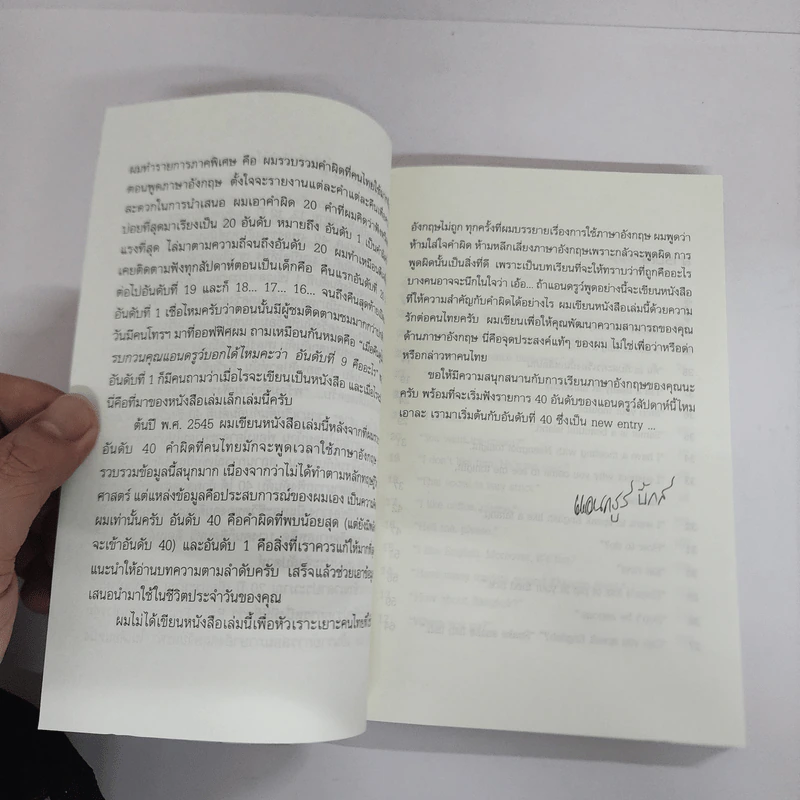 ผมทำรายการภาคพิเศษ คือ ผมรวบรวมคำผิดที่คนไทยใช้
ตอนพูดภาษาอังกฤษ ตั้งใจจะรายงานแต่ละคำแต่ละคืนเพื่อ
สะดวกในการนำเสนอ ผมเอาคำผิด 20 คำที่ผมคิดว่าคน
บ่อยที่สุดมาเรียงเป็น 20 อันดับ หมายถึง อันดับ 1 เป็น
แรงที่สุด ไล่มาตามความถี่จนถึงอันดับ 20 ผมทำเหมือน
เคยติดตามฟังทุกสัปดาห์ตอนเป็นเด็กคือ คืนแรกอันดับที่ 20
ต่อไปอันดับที่ 19 และก็ 18... 17... 16... จนถึงคืนสุดท้าย
อันดับที่ 1 เชื่อไหมครับว่าตอนนั้นมีผู้ชมติดตามชมมากกว่า
วันมีคนโทรฯ มาที่ออฟฟิศผม ถามเหมือนกันหมดคือ “เมื่อคืน
รบกวนคุณแอนดรูว์บอกได้ไหมคะว่า อันดับที่ 9 คืออะไร”
อันดับที่ 1 ก็มีคนถามว่าเมื่อไรจะเขียนเป็นหนังสือ และเมื่อ
นี่คือที่มาของหนังสือเล่มเล็กเล่มนี้ครับ
ต้นปี พ.ศ. 2545 ผมเขียนหนังสือเล่มนี้หลังจากที่
อันดับ 40 คำผิดที่คนไทยมักจะพูดเวลาใช้ภาษาอังกฤษ
รวบรวมข้อมูลนี้สนุกมาก เนื่องจากว่าไม่ได้ทำตามหลักทฤษฎี
ศาสตร์ แต่แหล่งข้อมูลคือประสบการณ์ของผมเอง เป็นความ
ผมเท่านั้นครับ อันดับ 40 คือคำผิดที่พบน้อยสุด (แต่ยัง
จะเข้าอันดับ 40) และอันดับ 1 คือสิ่งที่เราควรแก้ให้มาก
แนะนำให้อ่านบทความตามลำดับครับ เสร็จแล้วช่วยเอา
เสนอนำมาใช้ในชีวิตประจำวันของคุณ
ผมไม่ได้เขียนหนังสือเล่มนี้เพื่อหัวเราะเยาะคนไทย
อังกฤษไม่ถูก ทุกครั้งที่ผมบรรยายเรื่องการใช้ภาษาอังกฤษ ผมพูดว่า
ห้ามใส่ใจคำผิด ห้ามหลีกเลี่ยงภาษาอังกฤษเพราะกลัวจะพูดผิด การ
พูดผิดนั้นเป็นสิ่งที่ดี เพราะเป็นบทเรียนที่จะให้ทราบว่าที่ถูกคืออะไร
บางคนอาจจะนึกในใจว่า เอ้อ... ถ้าแอนดรูว์พูดอย่างนี้จะเขียนหนังสือ
ที่ให้ความสำคัญกับคำผิดได้อย่างไร ผมเขียนหนังสือเล่มนี้ด้วยความ
รักต่อคนไทยครับ ผมเขียนเพื่อให้คุณพัฒนาความสามารถของคุณ
ด้านภาษาอังกฤษ นี่คือจุดประสงค์แท้ๆ ของผม ไม่ใช่เพื่อว่าหรือด่า
หรือกล่าวหาคนไทย
ขอให้มีความสนุกสนานกับการเรียนภาษาอังกฤษของคุณนะ
ครับ พร้อมที่จะเริ่มฟังรายการ 40 อันดับของแอนดรูว์สัปดาห์นี้ไหม
เอาละ เรามาเริ่มต้นกับอันดับที่ 40 ซึ่งเป็น new entry ...
แอนดรูว์ บิกส์